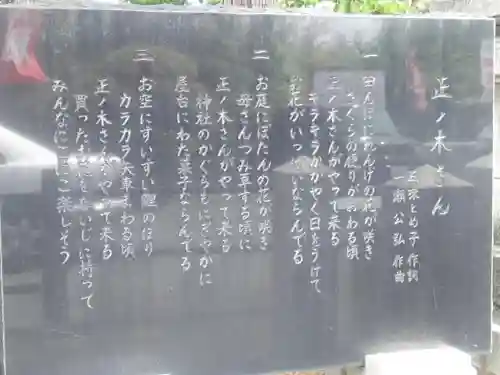 正ノ木さん
作詞
一瀬公弘 作曲
一
田んぼにれんげの花が咲き
さくらの便りがおわる頃
正ノ木さんがやって来る
キラキラかがやく日をうけて
お花がいっぱいならんでる
二
お庭にぼたんの花が咲き
母さんつみ草する頃に
正ノ木さんがやって来る
神社のかぐらもにぎやかに
屋台にわた菓子ならんでる
三
お空にすいすい鯉のぼり
カラカラ矢車まわる頃
正ノ木さんがやって来る
買ったお花をだいじに持って
みんなにこにこ楽しそう